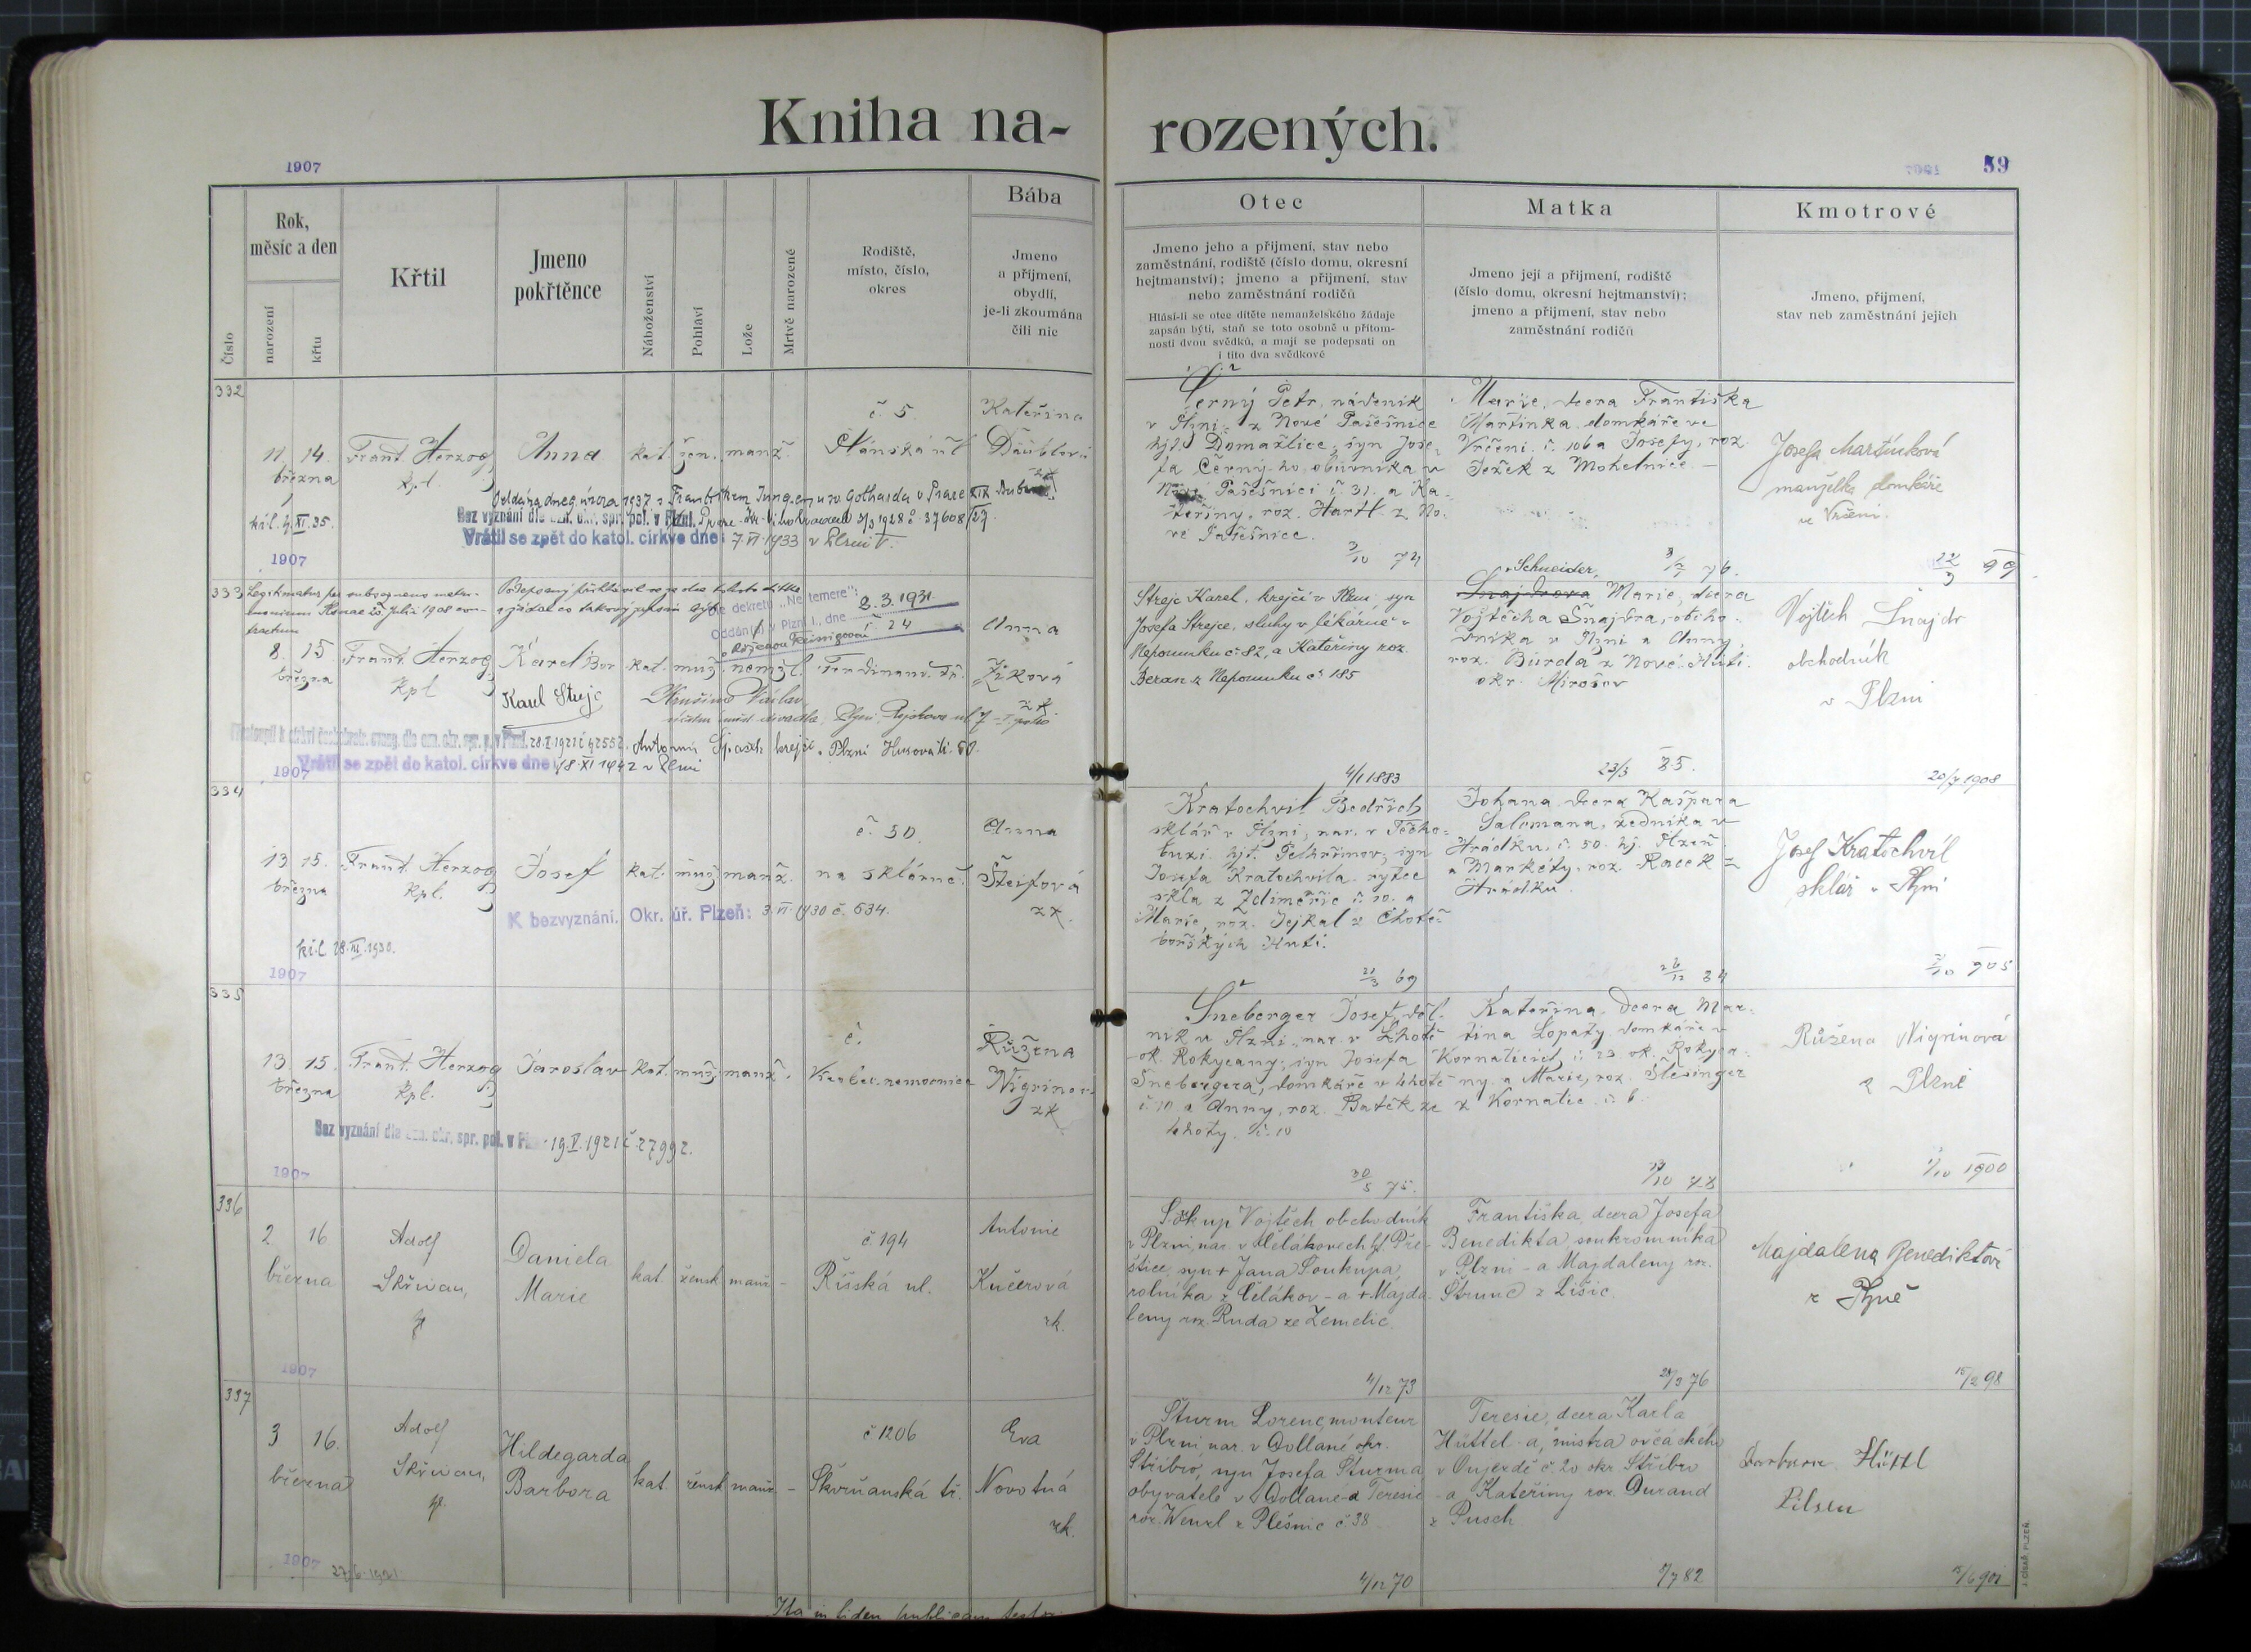 Kniha na-
rozených.
1907
59
Číslo
Rok,
měsíc a den
narození
křtu
Křtil
Jmeno
pokřtěnce
Náboženství
Pohlaví
Lože
Mrtvě narozené
Rodiště,
místo, číslo,
okres
Bába
Jmeno
a příjmení,
obydlí,
je-li zkoumána
čili nic
Otec
Jmeno jeho a přijmení, stav nebo
zaměstnání, rodiště (číslo domu, okresní
hejtmanství); jmeno a přijmení, stav
nebo zaměstnání rodičů
Hlásí-li se otec dítěte nemanželského žádaje
zapsán býti, staň se toto osobně u přítom-
nosti dvou svědků, a mají se podepsati on
i tito dva svědkové
Matka
Jmeno její a přijmení, rodiště
(číslo domu, okresní hejtmanství);
jmeno a přijmení, stav nebo
zaměstnání rodičů
Kmotrové
Jmeno, přijmení,
stav neb zaměstnání jejich
332
11. 14.
března
Frant. Herzog
kpl.
Anna
kat. žen. manž.
č. 5.
Kateřina
Däublová
Bez vyznání dle ozn. okr. spr. pol. v Plzni
Vrátil se zpět do katol. církve dne: 7. VI. 1933 v Plzni
Černý Petr, nádeník
v Plzni, z Nové Pašešnice
hjt. Domažlice, syn Jose-
fa Černý-ho, obuvníka v
Nové Pašešnici č. 31. a Ka-
teřiny, roz. Hartl z No-
vé Pašešnice.
3/10 74
Marie, dcera Františka
Martínka, domkáře ve
Vrčeni č. 106 a Josefy, roz.
Ježek z Mohelnice.
76.
Josefa Martínková
manželka domkáře
ve Vrčeni.
22/3 99
1907
333
8. 15.
března
Frant. Herzog
kpl
Karel Bor.
kat. muž. nemžl.
Ferdinand. tř.
Anna
Žíková
zk
Karel Strejc
dle dekretu „Ne temere":
Oddán(a) v Plzni I., dne 8. 3. 1931.
č. 24
28. I. 1921 č. 42552.
Antonín
krejčí
Plzni Husova tř. 50.
Vrátil se zpět do katol. církve dne 18. XI. 1942 v Plzni
Strejc Karel, krejčí v Plzni, syn
Josefa Strejce, sluhy v lékárně v
Nepomuku č. 82, a Kateřiny roz.
Beran z Nepomuku č. 185
4/1 1883
Schneider,
Šnajdrova Marie, dcera
Vojtěcha Šnajdra, obcho-
dníka v Plzni a Anny,
roz. Burda z Nové Huti
okr. Mirošov
23/3 85.
Vojtěch Šnajdr
obchodník
v Plzni
20/7 1908
1907
334
13 15.
března
Frant. Herzog
kpl.
Josef
kat. muž. manž.
č. 30.
na sklárně.
Anna
Šteifová
zk.
K bezvyznání. Okr. úř. Plzeň: 3. VI. 1930 č. 534.
Kratochvil Bedřich
sklář v Plzni, nar. v Těcho-
buzi hjt. Pelhřimov, syn
Josefa Kratochvila rytce
skla z Zdiměřic č. 10. a
Marie, roz. Jejkal z Chotě-
bořských Hutí.
21/3 69
Johana dcera Kašpara
Salomana, zedníka v
Hrádku č. 50. hj. Plzeň
a Markéty, roz. Racek z
Hrádku.
26/12 84
Josef Kratochvíl
sklář v Plzni
905
1907
335
13. 15.
března
Frant. Herzog
kpl.
Jaroslav
kat. muž. manž.
č.
nemocnice
Růžena
Nigrinov.
zk
Bez vyznání dle ozn. okr. spr. pol. v Plzni 19. V. 1921 č. 27992.
Šneberger Josef, děl-
ník v Plzni, nar. v Lhotě
ok. Rokycany, syn Josefa
Šnebergera, domkáře v Lhotě
č. 10, a Anny, roz. Batěk ze
Lhoty č. 10
30/5 75.
Kateřina, dcera Mar-
tina Lopaty, domkáře v
Kornaticích č. 23 ok. Rokyca-
ny, a Marie, roz. Šlesinger
z Kornatic č. 6.
13/10 78
Růžena Nigrinová
z Plzně
1/10 1900
1907
336
2 16
března
Adolf
Skřivan,
Daniela
Marie
kat. žensk. manž. -
č. 194
Říšská ul.
Antonie
Kučerová
zk.
Soukup Vojtěch obchodník
v Plzni, nar. v Čelákovech hjt. Pře-
štice, syn + Jana Soukupa,
rolníka z Čelákov - a + Majda-
leny roz. Ruda ze Zemětic.
4/12 73
Františka, dcera Josefa
Benedikta, soukromníka
v Plzni - a Majdaleny roz.
Štrunc z Lišic.
28/3 76
Majdalena Benediktová
z Plzně
15/2 98
1907
337
3 16.
března
Adolf
Skřivan,
Hildegarda
Barbora
kat. žensk. manž. -
č. 1206
Škvrňanská tř.
Eva
Novotná
zk.
Šturm Lorenc, monteur
v Plzni, nar. v Dollané okr.
Stříbro, syn Josefa Šturma
obyvatele v Dollané a Teresie
roz. Wenzl z Plešnic č. 38
4/12 70
Teresie, dcera Karla
Hüttel-a, mistra ovčáckého
v Oujezdě č. 20 okr. Stříbro
- a Kateřiny roz. Durand
z Pusch
7/7 82
Barbara Hüttl
Pilsen
1907
27/6 1921
J. CÍSAŘ, PLZEŇ.